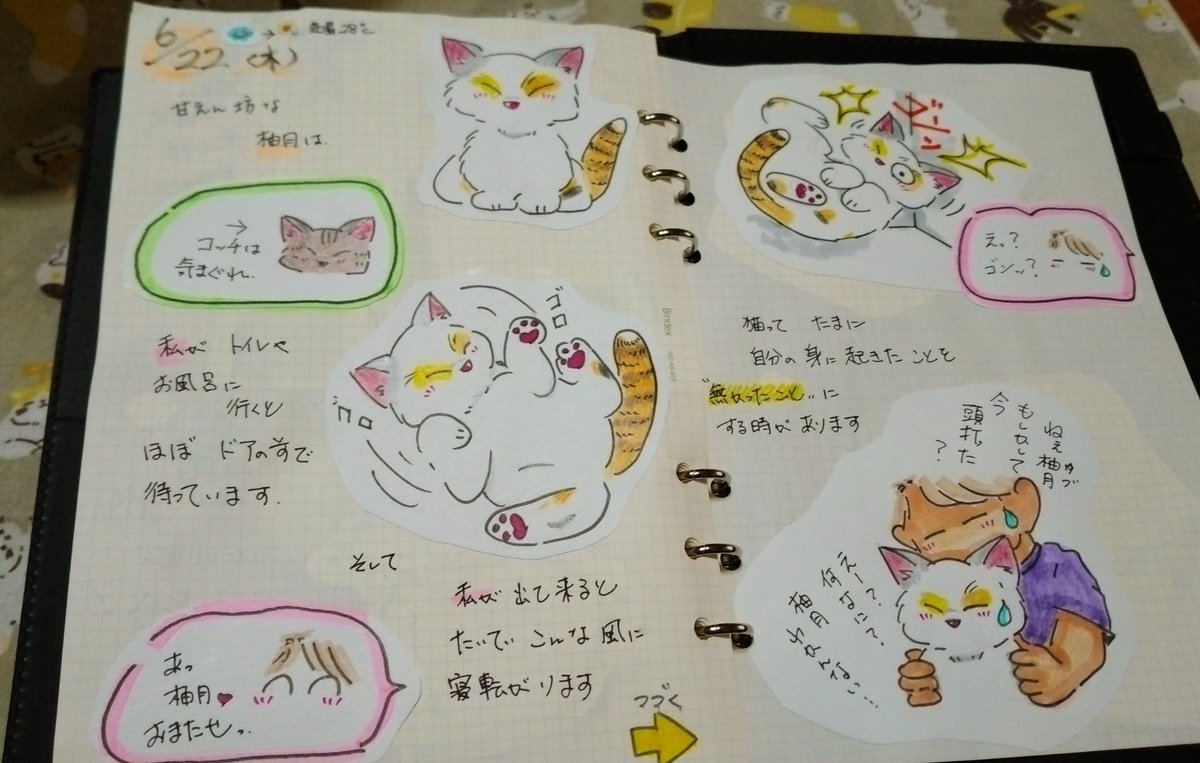 6/22(木)
気温28℃
甘えん坊な
柚月は
→
コッチは
気まぐれ.
私が トイレや
お風呂に
行くと
ほぼ ドアの前で
待っています.
そして
あっ
柚月♥
おまたせっ.
ゴロ
ゴロ
私が 出て来ると
たいてい こんな風に
寝転がります
つづく
Bindex
ガーン
えっ?
ゴンッ?
猫って たまに
自分の身に起きたことを
"無かったこと"に
する時があります
ねぇ柚月
ゆづ
もしかして
今
頭打った
?
えー?
何がなぁい?
柚月